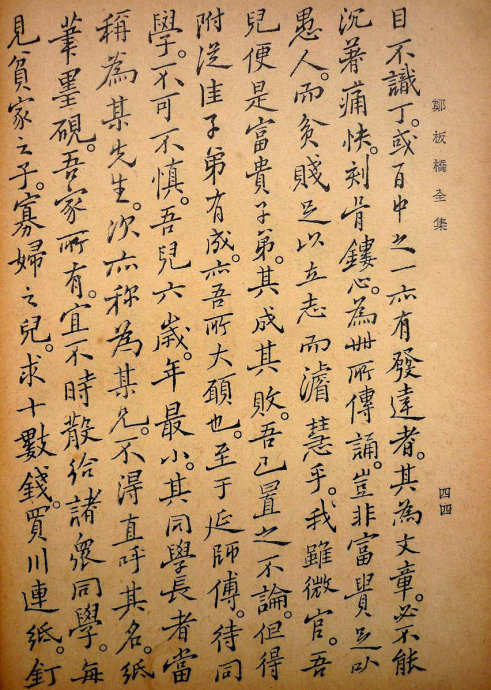 鄭板橋全集
四四
目不識丁。或百中之一亦有發達者。其為文章。必不能
沉著痛快。刻骨鏤心。為世所傳誦。豈非富貴足以
愚人。而貧賤足以立志而濬慧乎。我雖微官。吾
兒便是富貴子弟。其成其敗。吾已置之不論。但得
附從佳子弟有成。亦吾所大願也。至于延師傅。待同
學。不可不慎。吾兒六歲。年最小。其同學長者當
稱為某先生。次亦稱為某兄。不得直呼其名。紙
筆墨硯。吾家所有。宜不時散給諸眾同學。每
見貧家之子。寡婦之兒。求十數錢。買川連紙。釘